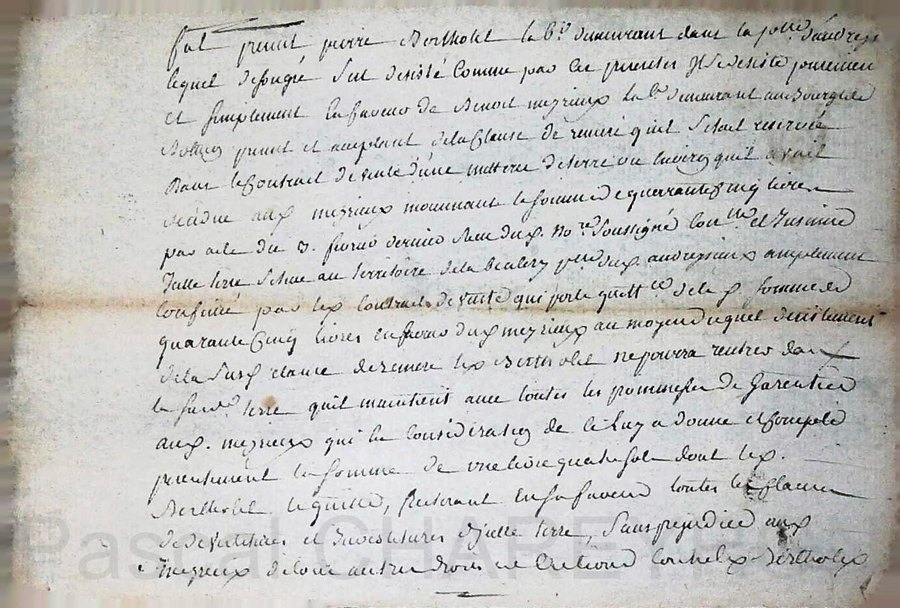 fut present pierre Bertholet lab.r demeurant dans la p.sse d'andrezi
lequel de son gré s'est desisté comme par ces presentes Il se desiste purement
et simplement en faveur de Benoit meyrieux lab.r demeurant au Bourg de
present et acceptant de la Clause de remeré qu'il s'etait reservée
Dans le Contrat de vente d'une de terre qu'il avait
vendue aud meyrieux moiennant la somme de quarante Cinq livres
par acte du dernier Receu dud. no.re soussigné et Insinué
Jcelle terre Située au territoire de la p.sse dud. andrezieux amplement
Confinée par led Contrat de vente qui porte quitt.ce de lad somme de
quarante Cinq livres en faveur dud meyrieux au moyen duquel desistement
de la Susd. clause de remeré led Bertholet ne pourra rentrer dans
la Susd. terre qu'il maintient avec toutes les promesses de Garentie
aud. meyrieux qui en Consideration de ce luy a donné et Compté
presentement la somme de une livre quatre sols dont led.
Berthollet le quitte, en sa faveur toutes les Clauses
de devetitures et Investitures d'jcelle terre, Sans prejudice aud
meyrieux de tous autres droits et actions contre led Bertholet
Pascal CHARE